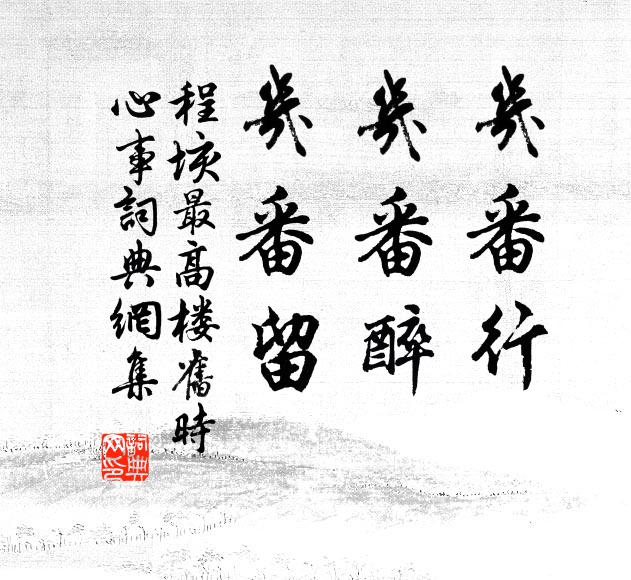 幾番行
幾番醉
幾番留
程垓最高楼舊時
心事詞典網集
詞典网印